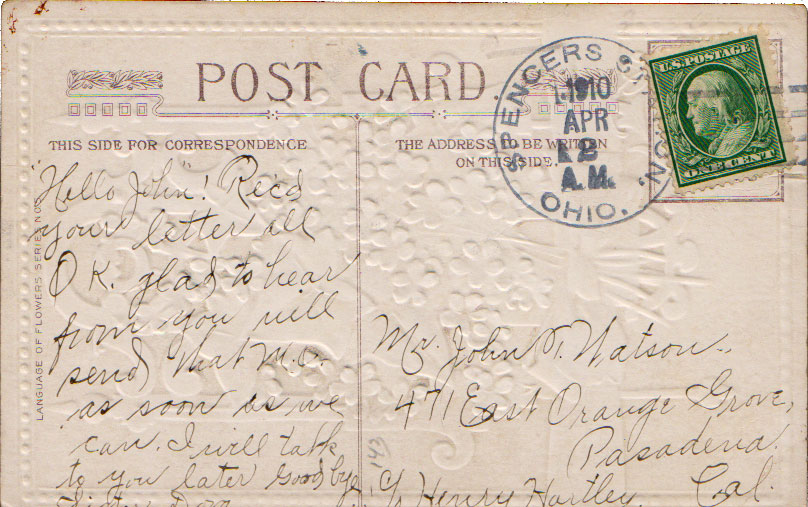 POST CARD
THIS SIDE FOR CORRESPONDENCE
THE ADDRESS TO BE WRITTEN
ON THIS SIDE.
SPENCERS STATION,
1910
APR
12
A.M.
OHIO.
U.S. POSTAGE
ONE CENT
LANGUAGE OF FLOWERS SERIES NO
"Hello John"! Rec'd
your letter all
O K. glad to hear
from you will
send that M.O.
as soon as we
can. I will talk
to you later Good bye
Sister
Mr. John T. Watson.
471 East Orange Grove,
Pasadena
Cal.
c/o Henry Hartley.
143